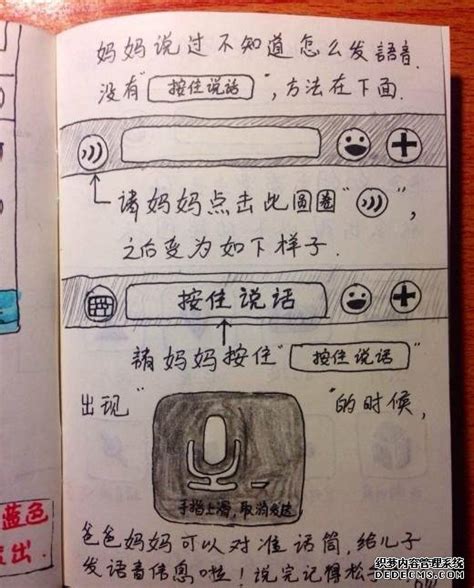 妈妈说过不知道怎么发語音.
没有"按住说话",方法在下面.
请妈妈点击此圆圈"",
之后变为如下样子.
按住说话
請妈妈按住"按住说话"
出现" "的时候,
手指上滑,取消发送
爸爸妈妈可以对准话筒,给儿子
发语音信息啦!说完记得松
蓝色
出.
织梦内容管理系统
DEDECMS.COM